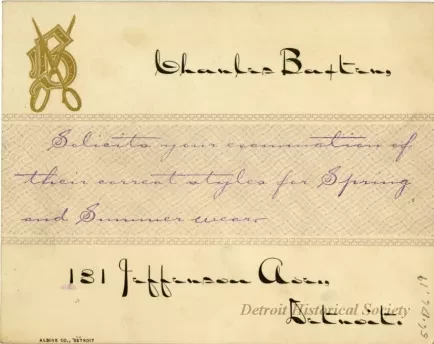 B
Charles Baxter,
Solicits your examination of
their correct styles for Spring
and Summer wear.
131 Jefferson Ave.,
Detroit.
Detroit Historical Society
ALBION CO., DETROIT